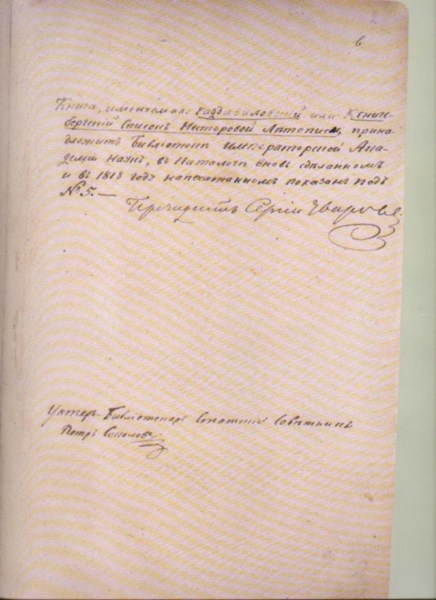 6
Книга, именуемая: Радзивиловский или Кенигс-
бергский Списокъ Несторовой Лѣтописи, прина-
длежитъ Библіотекѣ Императорской Ака-
деміи Наукъ, въ Каталогѣ вновь сдѣланномъ
и въ 1818 годѣ напечатанномъ показанъ подъ
№ 5. —
Президентъ Сергій Уваровъ.
Унтер-Библіотекарь Совѣтникъ
Петръ Соколовъ